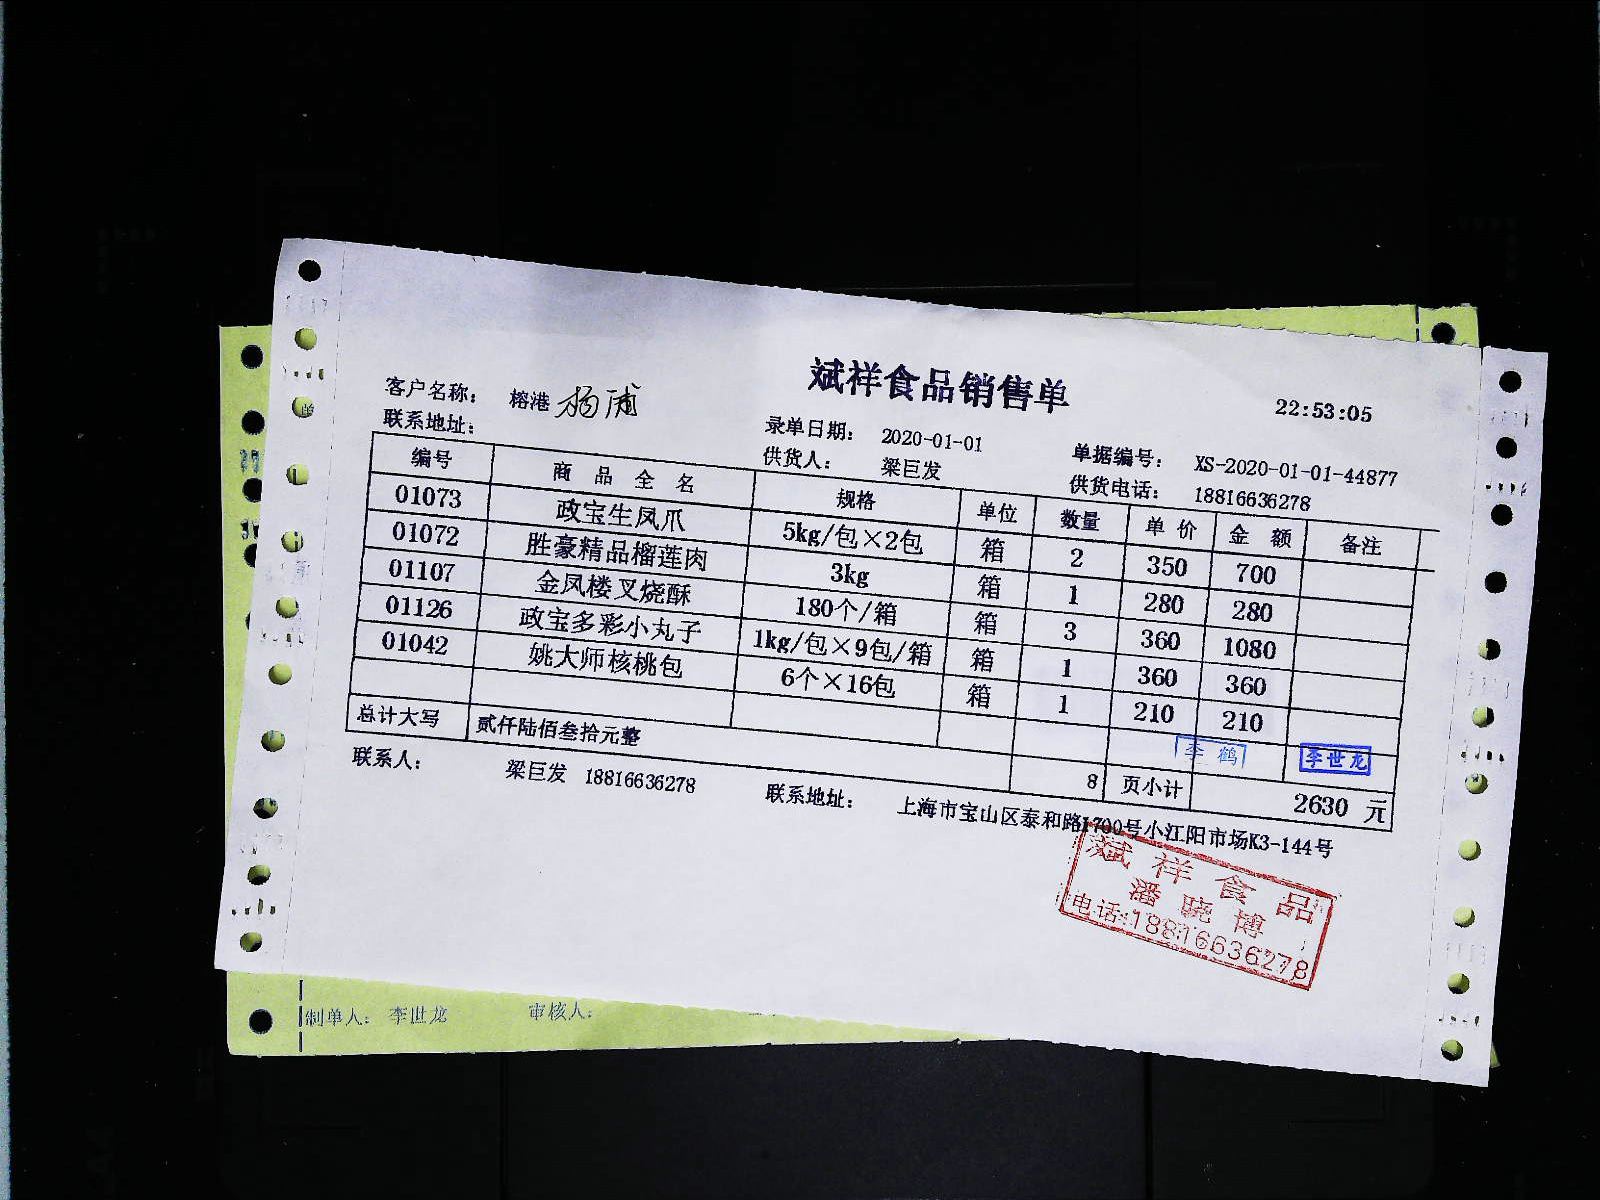 斌祥食品销售单
22:53:05
客户名称： 榕港 杨浦
联系地址： 录单日期： 2020-01-01 单据编号： XS-2020-01-01-44877
供货人： 梁巨发 供货电话： 18816636278
编号 商品全名 规格 单位 数量 单价 金额 备注
01073 政宝生凤爪 5kg/包×2包 箱 2 350 700
01072 胜豪精品榴莲肉 3kg 箱 1 280 280
01107 金凤楼叉烧酥 180个/箱 箱 3 360 1080
01126 政宝多彩小丸子 1kg/包×9包/箱 箱 1 360 360
01042 姚大师核桃包 6个×16包 箱 1 210 210
李鹤 李世龙
总计大写 贰仟陆佰叁拾元整 8 页小计 2630 元
联系人： 梁巨发 18816636278 联系地址： 上海市宝山区泰和路1700号小江阳市场K3-144号
斌祥食品
潘晓博
电话:18816636278
制单人： 李世龙 审核人：